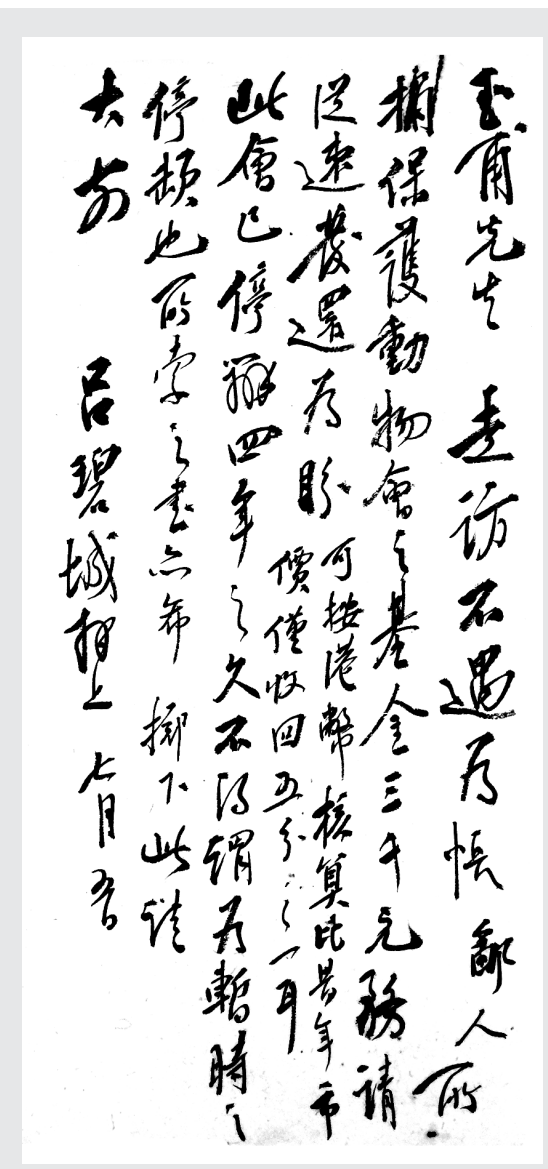 玉甫先生 走訪不遇為悵鄙人所
捐保護動物會之基金三千元務請
從速發還為盼可按港幣核算比昔年市
價僅收回五分之一耳
此會已停辦四年之久不得謂為暫時之
停頓也所索之書亦希 擲下此請
大安
呂碧城拜上 七月五日